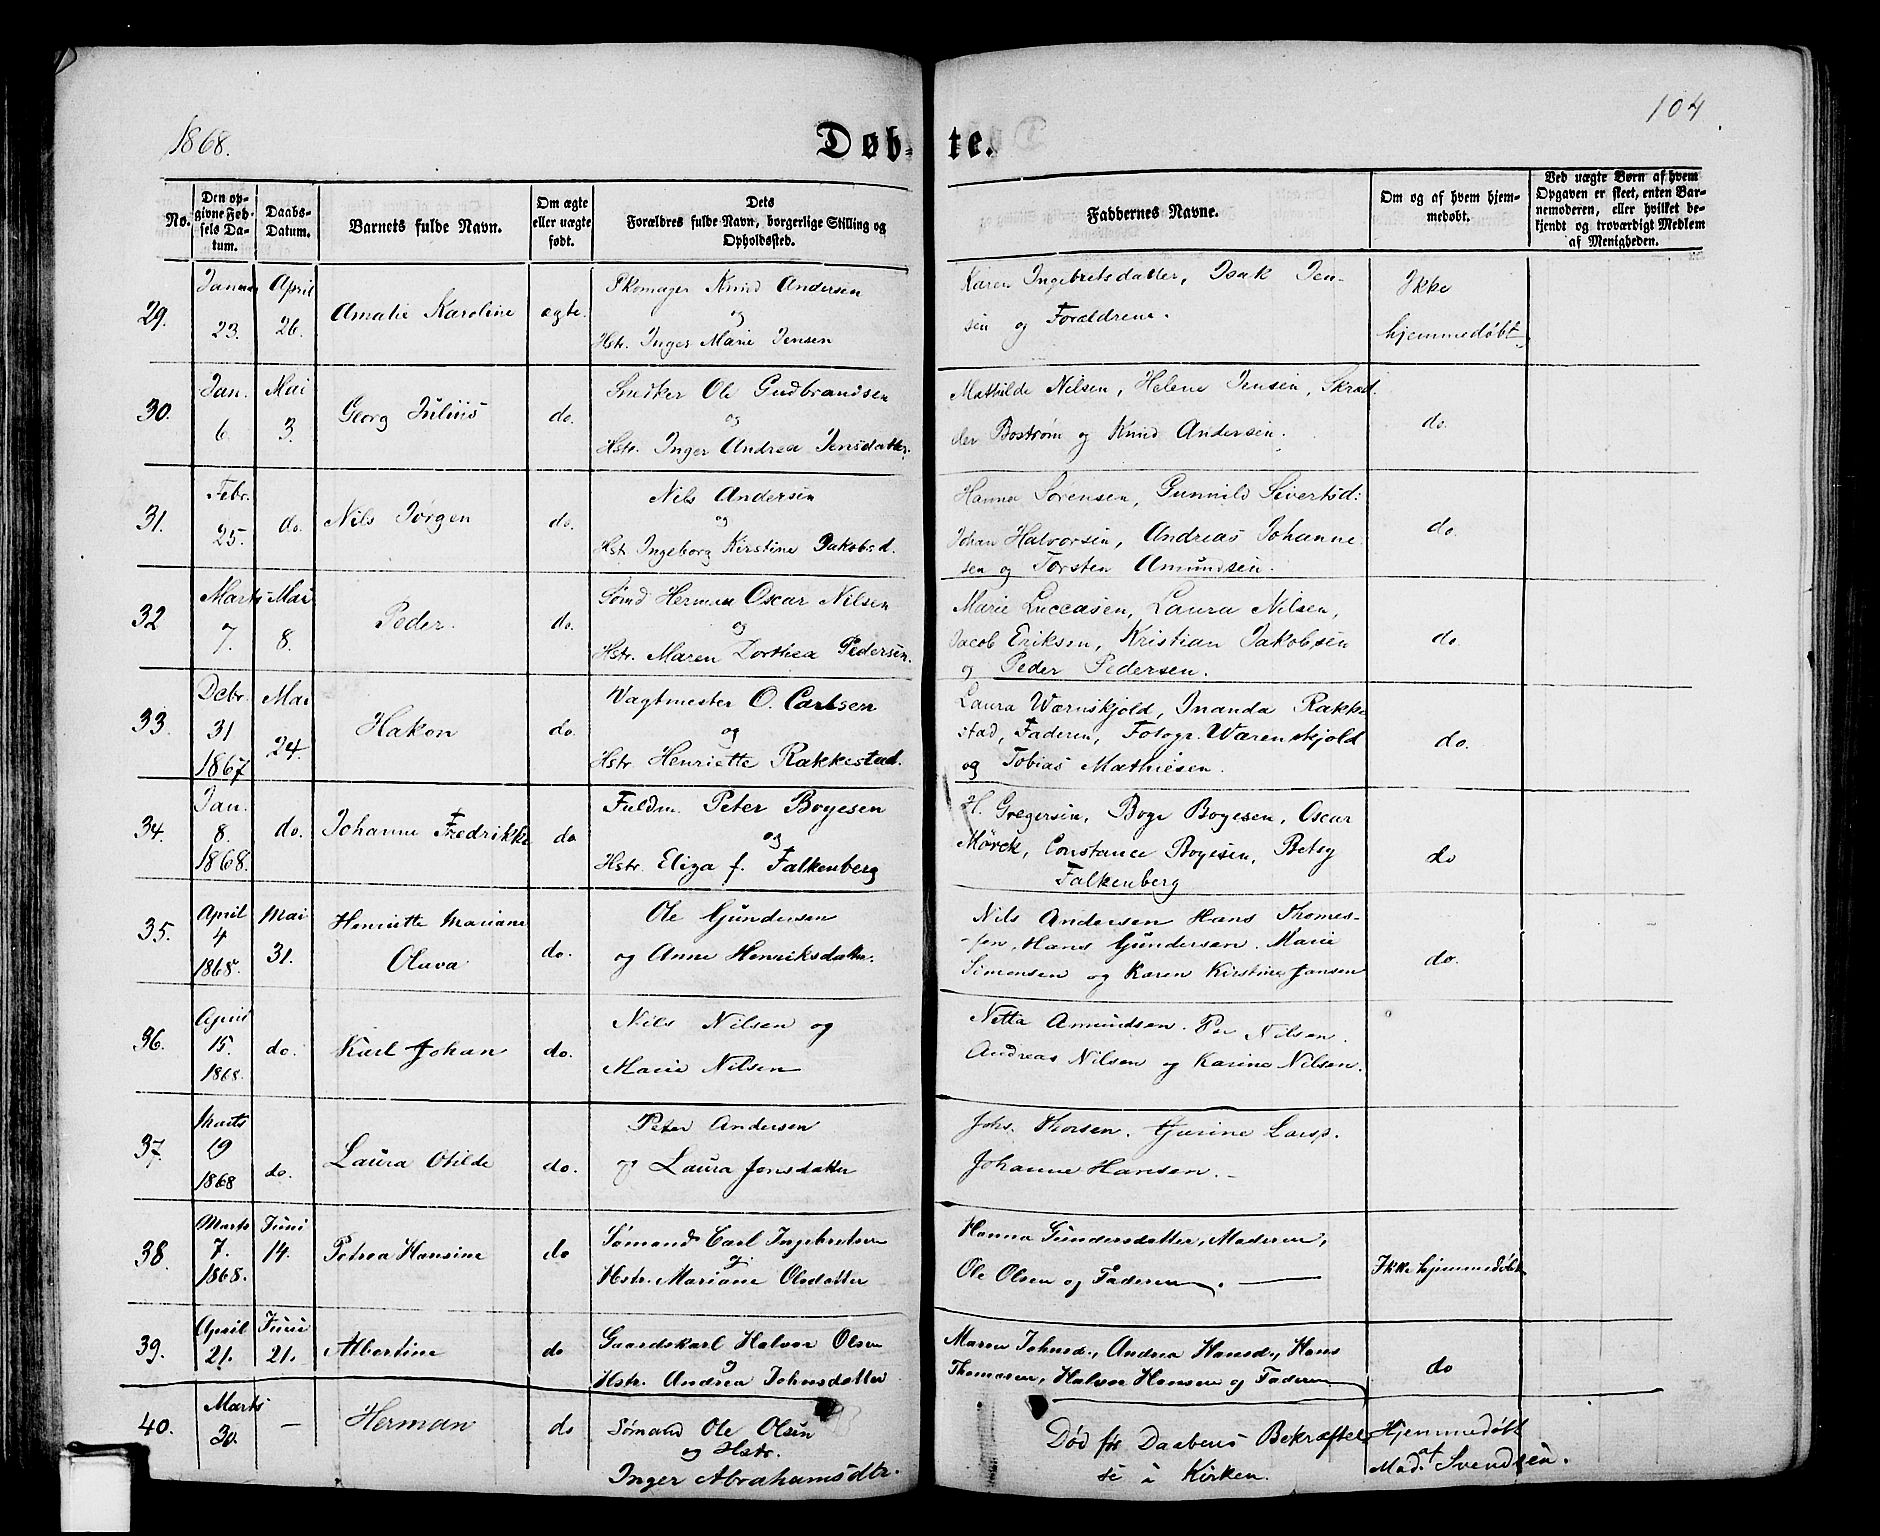 1868.
104
Døb-te.
No.
Den op-
givne Fød-
sels Da-
tum.
Daabs-
Datum.
Barnets fulde Navn.
Om ægte
eller uægte
født.
Dets
Forældres fulde Navn, borgerlige Stilling og
Opholdssted.
Faddernes Navne.
Om og af hvem hjem-
medøbt.
Ved uægte Børn af hvem
Opgaven er skeet, enten Bar-
nemoderen, eller hvilket be-
kjendt og troværdigt Medlem
af Menigheden.
29.
Januar
23.
April
26.
Amalie Karoline
ægte.
Skomager Knud Andersen
og
Hstr. Inger Marie Jensen
Karen Ingebretsdatter, Isak Jen-
sen og Forældrene.
Ikke
hjemmedøbt.
30.
Jan.
6.
Mai
3.
Georg Julius
do.
Snedker Ole Gudbrandsen
og
Hstr. Inger Andrea Jensdatter.
Mathilde Nilsen, Helene Jensen, Skræd.
der Bostrøm og Knud Andersen.
do.
31.
Febr.
25.
do.
Nils Jørgen
do.
Nils Andersen
og
Hstr. Ingeborg Kirstine Jakobsd.
Hanna Sørensen, Gunnild Sivertsd:
Johan Halvorsen, Andreas Johanne
sen og Torsten Amundsen.
do.
32
Marts
7.
Mai
8.
Peder.
do.
Sømd Herman Oscar Nilsen
og
Hstr. Maren Dorthea Pedersen.
Marie Luccasen, Laura Nilsen,
Jacob Eriksen, Kristian Jakobsen
og Peder Pedersen.
do.
33.
Debr.
31
1867
Mai
24.
Hakon
do.
Vagtmester O. Carlsen
og
Hstr. Henriette Rakkestad.
Laura Wærnskjold, Inanda Rakke
stad, Faderen, Fotogr. Wærenskjold
og Tobias Mathiesen.
do.
34.
Jan.
8.
1868.
do.
Johanne Fredrikke
do
Fuldm. Peter Boyesen
og
Hstr. Eliza f. Falkenberg
H. Gregersen, Boye Boyesen, Oscar
Mørck, Constance Boyesen, Betsy
Falkenberg
do
35.
April
4
1868.
Mai
31.
Henriette Mariane
Oluva
do.
Ole Gundersen
og Anne Henriksdatter.
Nils Andersen Hans Thomes-
sen, Hans Gundersen. Marie
Simensen og Karen Kirstine Jansen
do.
36.
April
15.
1868.
do.
Karl Johan
do.
Nils Nilsen og
Marie Nilsen
Netta Amundsen. Per Nilsen.
Andreas Nilsen og Karine Nilsen.
37.
Marts
19
1868
do.
Laura Otilde
do.
Peter Andersen
og Laura Jensdatter
Johs. Thorsen. Gurine Larsd.
Johanne Hansen.
38.
Marts
7.
1868.
Juni
14.
Petrea Hansine
do
Sømand Carl Ingebretsen
og
Hstr. Mariane Olsdatter
Hanna Gundersdatter, Moderen,
Ole Olsen og Faderen.
Ikke hjemmedøbt
39.
April
21.
Juni
21.
Albertine
do
Gaardskarl Halvor Olsen
og
Hstr. Andrea Johnsdatter
Maren Johnsd., Andrea Hansd., Hans
Thomasen, Halvor Hansen og Faderen
do
40.
Marts
30.
—
Herman
do
Sømand Ole Olsen
og Hstr.
Inger Abrahamsdtr.
Død før Daabens Bekræftel
se i Kirken.
Hjemmedøbt
af
Mad. Svendsen.